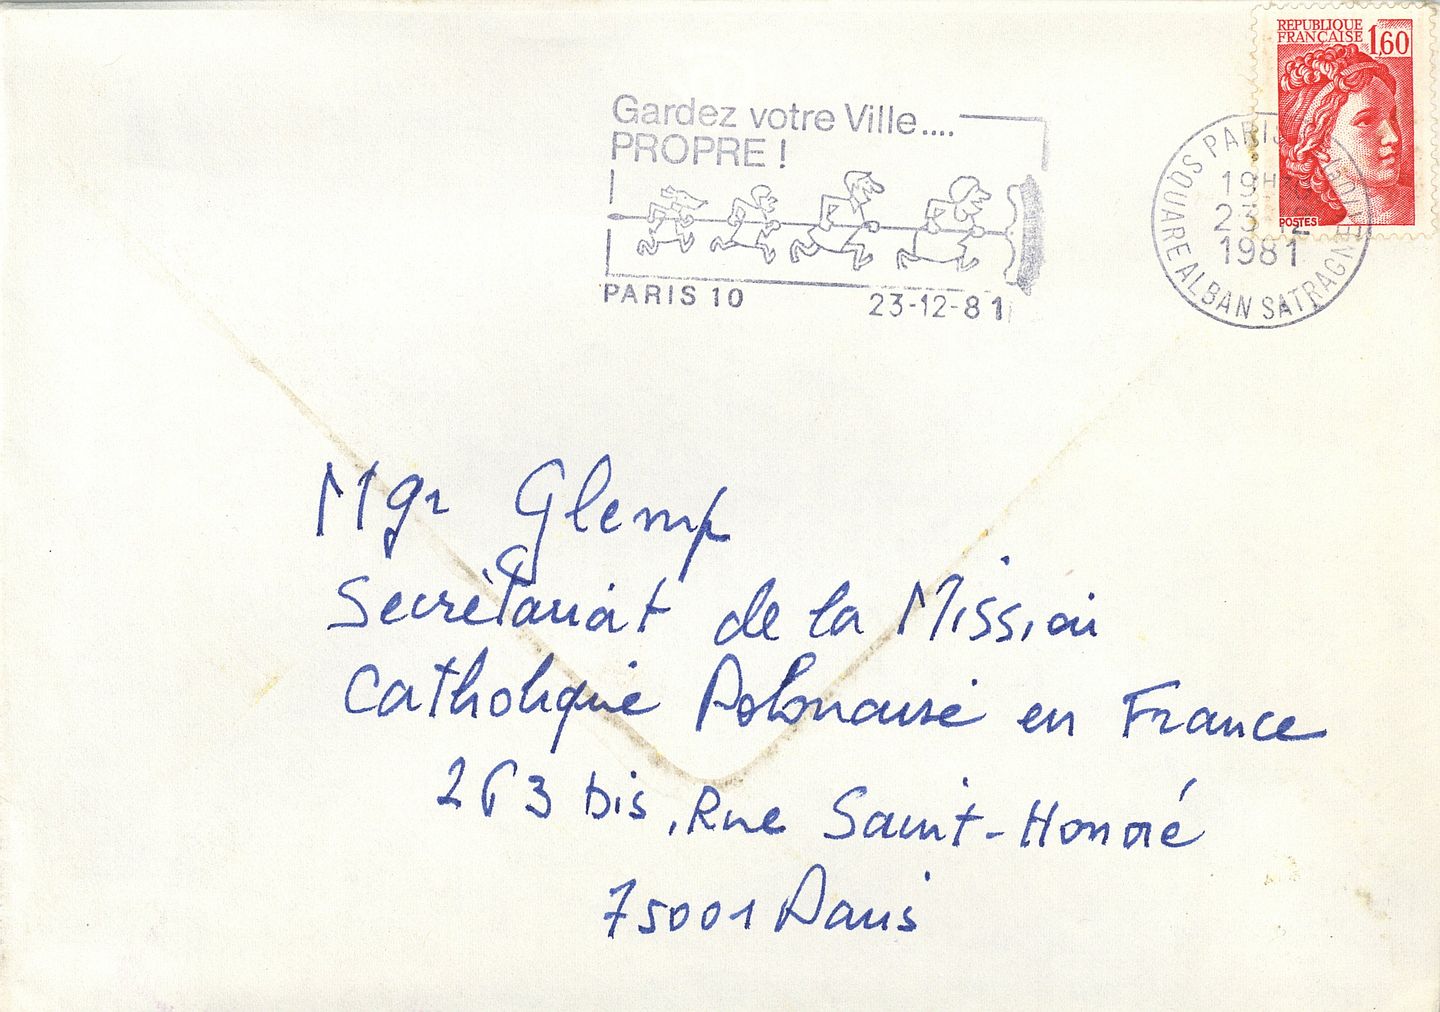 REPUBLIQUE
FRANÇAISE
1,60
POSTES
Gardez votre Ville....
PROPRE !
PARIS 10
23-12-81
PARIS
19H
23 12
1981
SQUARE ALBAN SATRAGNE
Mgr Glemp
Secrétariat de la Mission
Catholique Polonaise en France
263 bis, Rue Saint-Honoré
75001 Paris